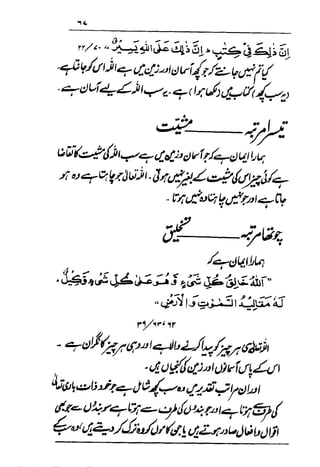 ۶۷
اِنَّ ذٰلِكَ فِیْ كِتٰبٍ ؕ اِنَّ ذٰلِكَ عَلَی اللّٰهِ یَسِیْرٌ ۲۲/۷۰
کیا تم نہیں جانتے کہ جو کچھ آسمان اور زمین میں ہے اللہ اس کو جانتا ہے۔
(یہ سب کچھ) کتاب میں (لکھا ہوا) ہے۔ یہ سب اللہ کے لیے آسان ہے۔
تیسرا مرتبہ ــــــ مشیّت
ہمارا ایمان ہے کہ جو آسمان و زمین میں ہے سب اللہ کی مشیت کا تقاضا
ہے کوئی چیز اس کی مشیت کے بغیر نہیں ہوتی۔ اللہ تعالیٰ جو چاہتا ہے وہ ہو
جاتا ہے اور جو نہیں چاہتا وہ نہیں ہوتا۔
چوتھا مرتبہ ــــــ تخلیق
ہمارا ایمان ہے کہ
"اَللّٰهُ خَالِقُ كُلِّ شَیْءٍ وَّ هُوَ عَلٰی كُلِّ شَیْءٍ وَّكِیْلٌ۔
لَهٗ مَقَالِیْدُ السَّمٰوٰتِ وَ الْاَرْضِ"
۳۹/۶۳،۶۲
اللہ تعالیٰ ہی ہر چیز کو پیدا کرنے والا ہے اور وہی ہر چیز کا نگران ہے۔
اس کے پاس آسمانوں اور زمین کی کنجیاں ہیں۔
اور ان مراتب تقدیر میں وہ سب کچھ شامل ہے جو خود ذات باری تعالیٰ
کی طرف سے ہوتا ہے اور جو بندوں کی طرف سے ہوتا ہے سو بندوں سے جو بھی
اقوال و افعال صادر ہوتے ہیں یا جن کاموں کو وہ ترک کر دیتے ہیں وہ سب کے